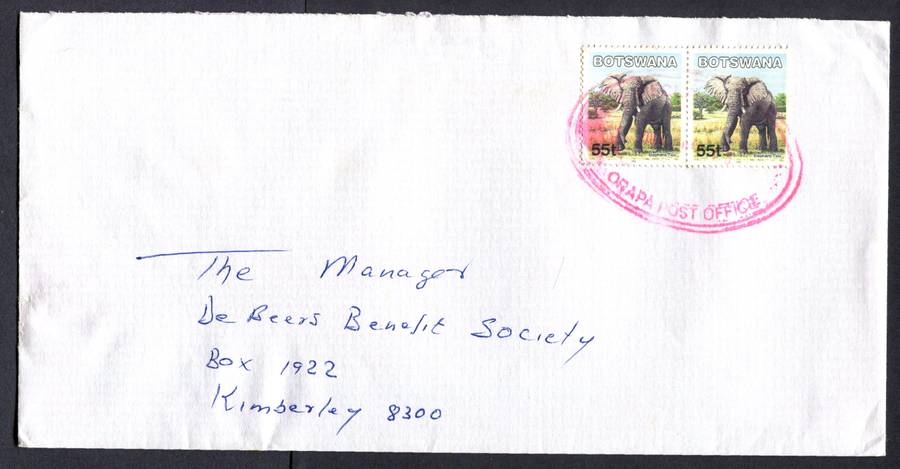 BOTSWANA BOTSWANA
55t 55t
ORAPA POST OFFICE
The Manager
De Beers Benefit Society
Box 1922
Kimberley 8300